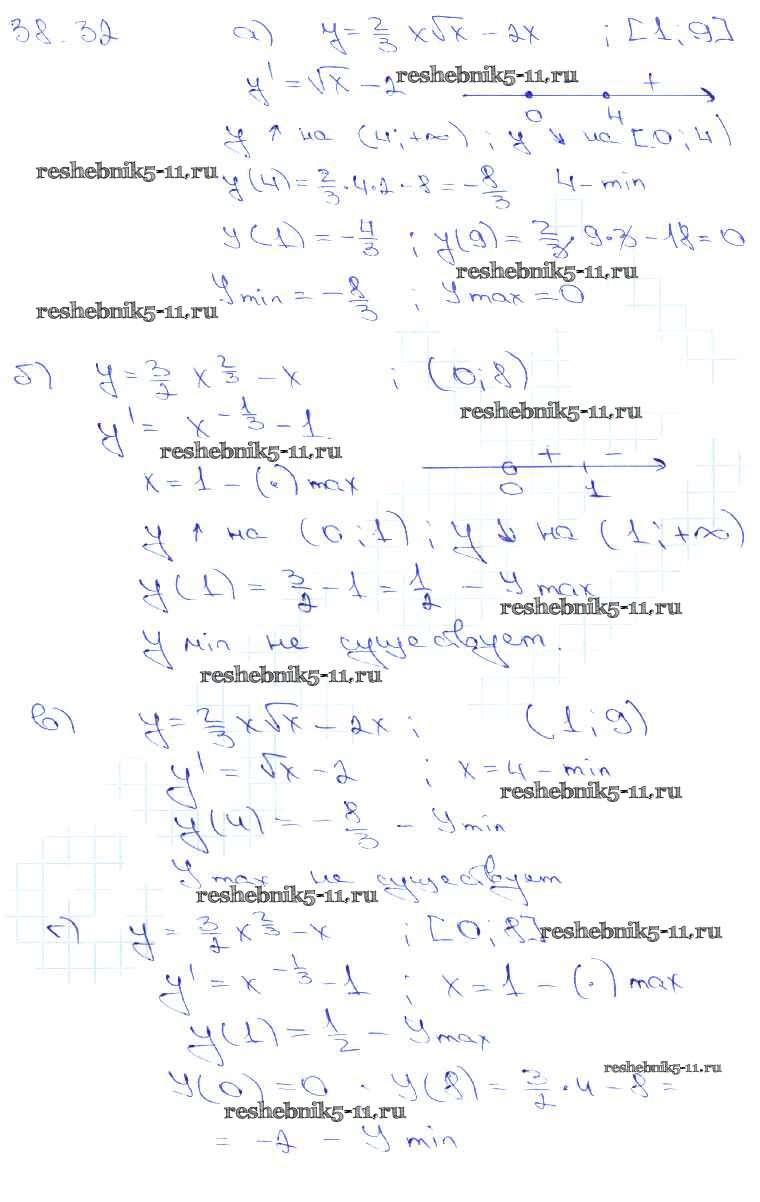 38.32 а) y = 2/3 x√x − 2x ; [1; 9]
y' = √x − 2 reshebnik5-11.ru +
0 4
y ↑ на (4; +∞) ; y ↓ на [0; 4)
reshebnik5-11.ru y(4) = 2/3 · 4 · 2 − 8 = −8/3 4 − min
y(1) = −4/3 ; y(9) = 2/3 · 9 · 3 − 18 = 0
reshebnik5-11.ru
reshebnik5-11.ru y min = −8/3 ; y max = 0
б) y = 3/2 x^(2/3) − x ; (0; 8)
reshebnik5-11.ru
y' = x^(−1/3) − 1
reshebnik5-11.ru + −
x = 1 − (·) max 0 1
y ↑ на (0; 1) ; y ↓ на (1; +∞)
y(1) = 3/2 − 1 = 1/2 − y max
reshebnik5-11.ru
y min не существует.
reshebnik5-11.ru
в) y = 2/3 x√x − 2x ; (1; 9)
y' = √x − 2 ; x = 4 − min
reshebnik5-11.ru
y(4) = −8/3 − y min
y max не существует
reshebnik5-11.ru
г) y = 3/2 x^(2/3) − x ; [0; 8] reshebnik5-11.ru
y' = x^(−1/3) − 1 ; x = 1 − (·) max
y(1) = 1/2 − y max
reshebnik5-11.ru
y(0) = 0 · y(8) = 3/2 · 4 − 8 =
reshebnik5-11.ru
= −2 − y min